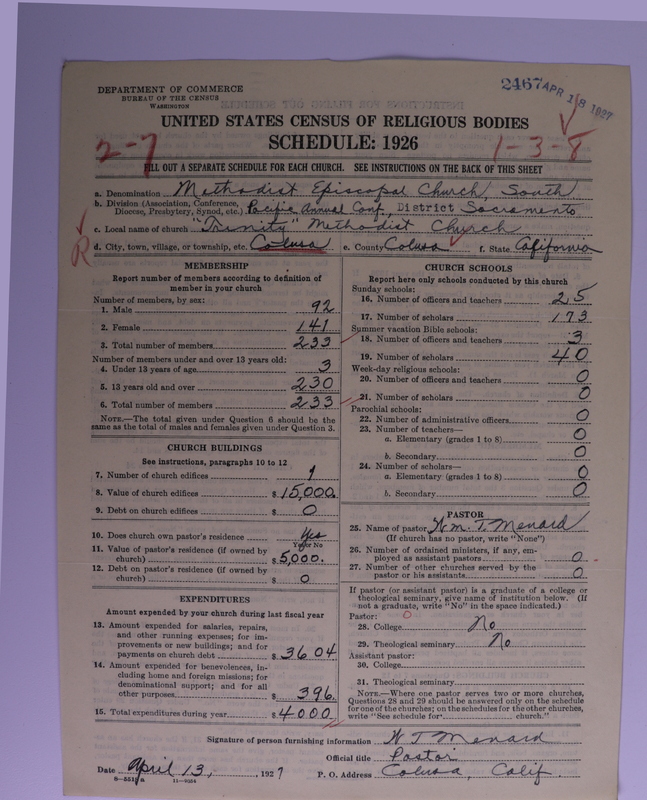 2467 APR 18 1927
DEPARTMENT OF COMMERCE
BUREAU OF THE CENSUS
WASHINGTON
UNITED STATES CENSUS OF RELIGIOUS BODIES
SCHEDULE: 1926
2-7
1-3-8
FILL OUT A SEPARATE SCHEDULE FOR EACH CHURCH. SEE INSTRUCTIONS ON THE BACK OF THIS SHEET
a. Denomination Methodist Episcopal Church, South
b. Division (Association, Conference, Diocese, Presbytery, Synod, etc.) Pacific Annual Conf, District Sacramento
c. Local name of church "Trinity" Methodist Church
R
d. City, town, village, or township, etc. Colusa e. County Colusa f. State California
MEMBERSHIP
Report number of members according to definition of
member in your church
Number of members, by sex:
1. Male 92
2. Female 141
3. Total number of members 233
Number of members under and over 13 years old:
4. Under 13 years of age 3
5. 13 years old and over 230
6. Total number of members 233
NOTE.—The total given under Question 6 should be the
same as the total of males and females given under Question 3.
CHURCH BUILDINGS
See instructions, paragraphs 10 to 12
7. Number of church edifices 1
8. Value of church edifices $15,000.
9. Debt on church edifices $ 0
10. Does church own pastor's residence Yes
Yes or No
11. Value of pastor's residence (if owned by
church) $5,000.
12. Debt on pastor's residence (if owned by
church) $ 0
EXPENDITURES
Amount expended by your church during last fiscal year
13. Amount expended for salaries, repairs,
and other running expenses; for im-
provements or new buildings; and for
payments on church debt $3604
14. Amount expended for benevolences, in-
cluding home and foreign missions; for
denominational support; and for all
other purposes $ 396.
15. Total expenditures during year $4000.
CHURCH SCHOOLS
Report here only schools conducted by this church
Sunday schools:
16. Number of officers and teachers 25
17. Number of scholars 173
Summer vacation Bible schools:
18. Number of officers and teachers 3
19. Number of scholars 40
Week-day religious schools:
20. Number of officers and teachers 0
21. Number of scholars 0
Parochial schools:
22. Number of administrative officers 0
23. Number of teachers—
a. Elementary (grades 1 to 8) 0
b. Secondary 0
24. Number of scholars—
a. Elementary (grades 1 to 8) 0
b. Secondary 0
PASTOR
25. Name of pastor Wm. T. Menard
(If church has no pastor, write "None")
26. Number of ordained ministers, if any, em-
ployed as assistant pastors 0
27. Number of other churches served by the
pastor or his assistants 0
If pastor (or assistant pastor) is a graduate of a college or
theological seminary, give name of institution below. (If
not a graduate, write "No" in the space indicated.)
Pastor: 0
28. College No
29. Theological seminary No
Assistant pastor:
30. College
31. Theological seminary
NOTE.—Where one pastor serves two or more churches,
Questions 28 and 29 should be answered only on the schedule
for one of the churches; on the schedules for the other churches,
write "See schedule for church."
Signature of person furnishing information W T Menard
Official title Pastor
Date April 13, 1927 P. O. Address Colusa, Calif.
8-551 a 11-9054